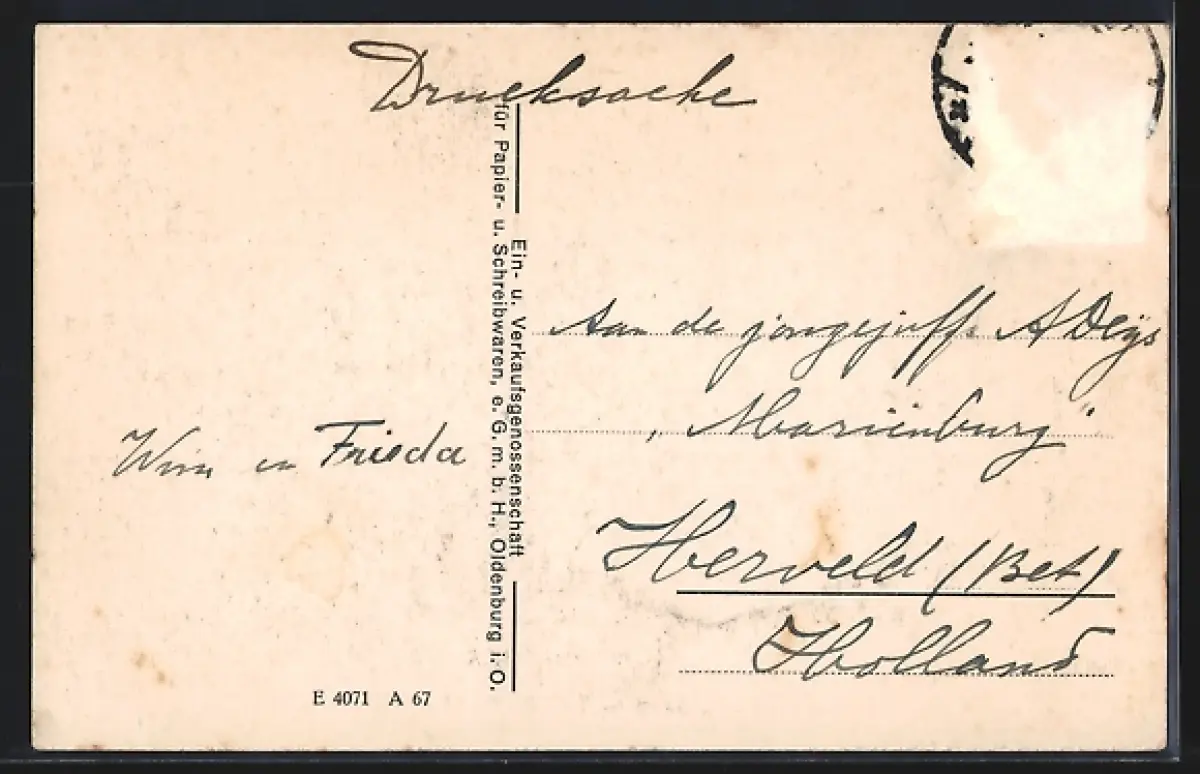 Drucksache
Ein- u. Verkaufsgenossenschaft
für Papier- u. Schreibwaren, e. G. m. b. H., Oldenburg i. O.
Aan de jongejuffr A Deys
„Mariënburg"
Wim en Frieda
Herveld (Bet)
Holland
E 4071 A 67